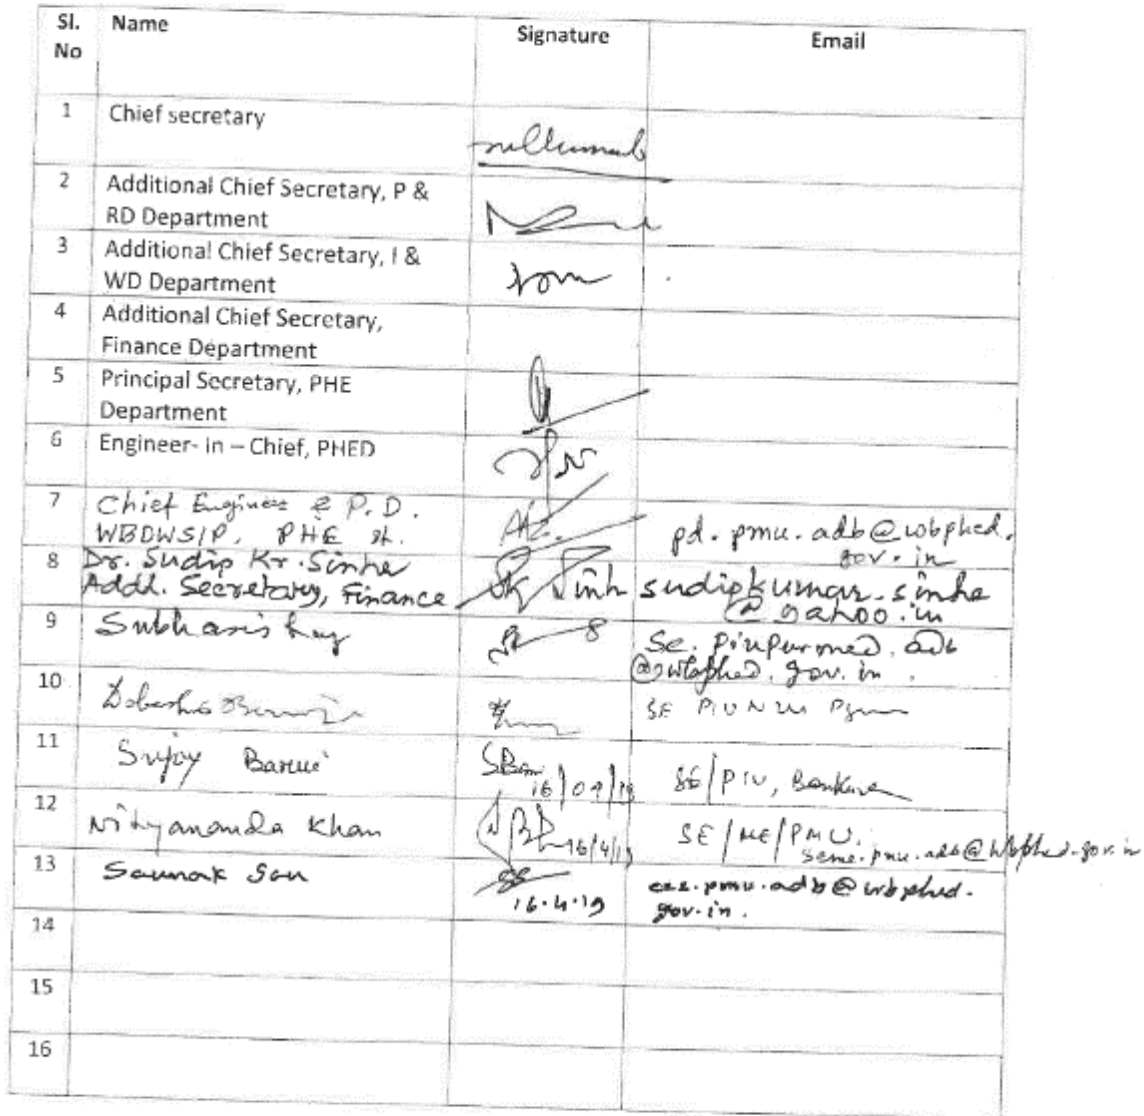 Sl. No Name Signature Email
1 Chief secretary
2 Additional Chief Secretary, P &
RD Department
3 Additional Chief Secretary, I &
WD Department
4 Additional Chief Secretary,
Finance Department
5 Principal Secretary, PHE
Department
6 Engineer- in – Chief, PHED
7 Chief Engineer & P.D.
WBDWSIP, PHE
pd.pmu.adb@wbphed.
gov.in
8 Dr. Sudip Kr. Sinha
Addl. Secretary, Finance
sudipkumar.sinha
@yahoo.in
9 Subhasis
Se. piupurmed.adb
@wbphed.gov.in.
10 SE PIU
11 Sujoy Barui 16/04/19 SE/PIU, Bankura
12 Nityananda Khan 16/4/19 SE/ME/PMU.
seme.pmu.adb@wbphed.gov.in
13 Saunak Sau
16.4.19
.pmu.adb@wbphed.
gov.in.
14
15
16